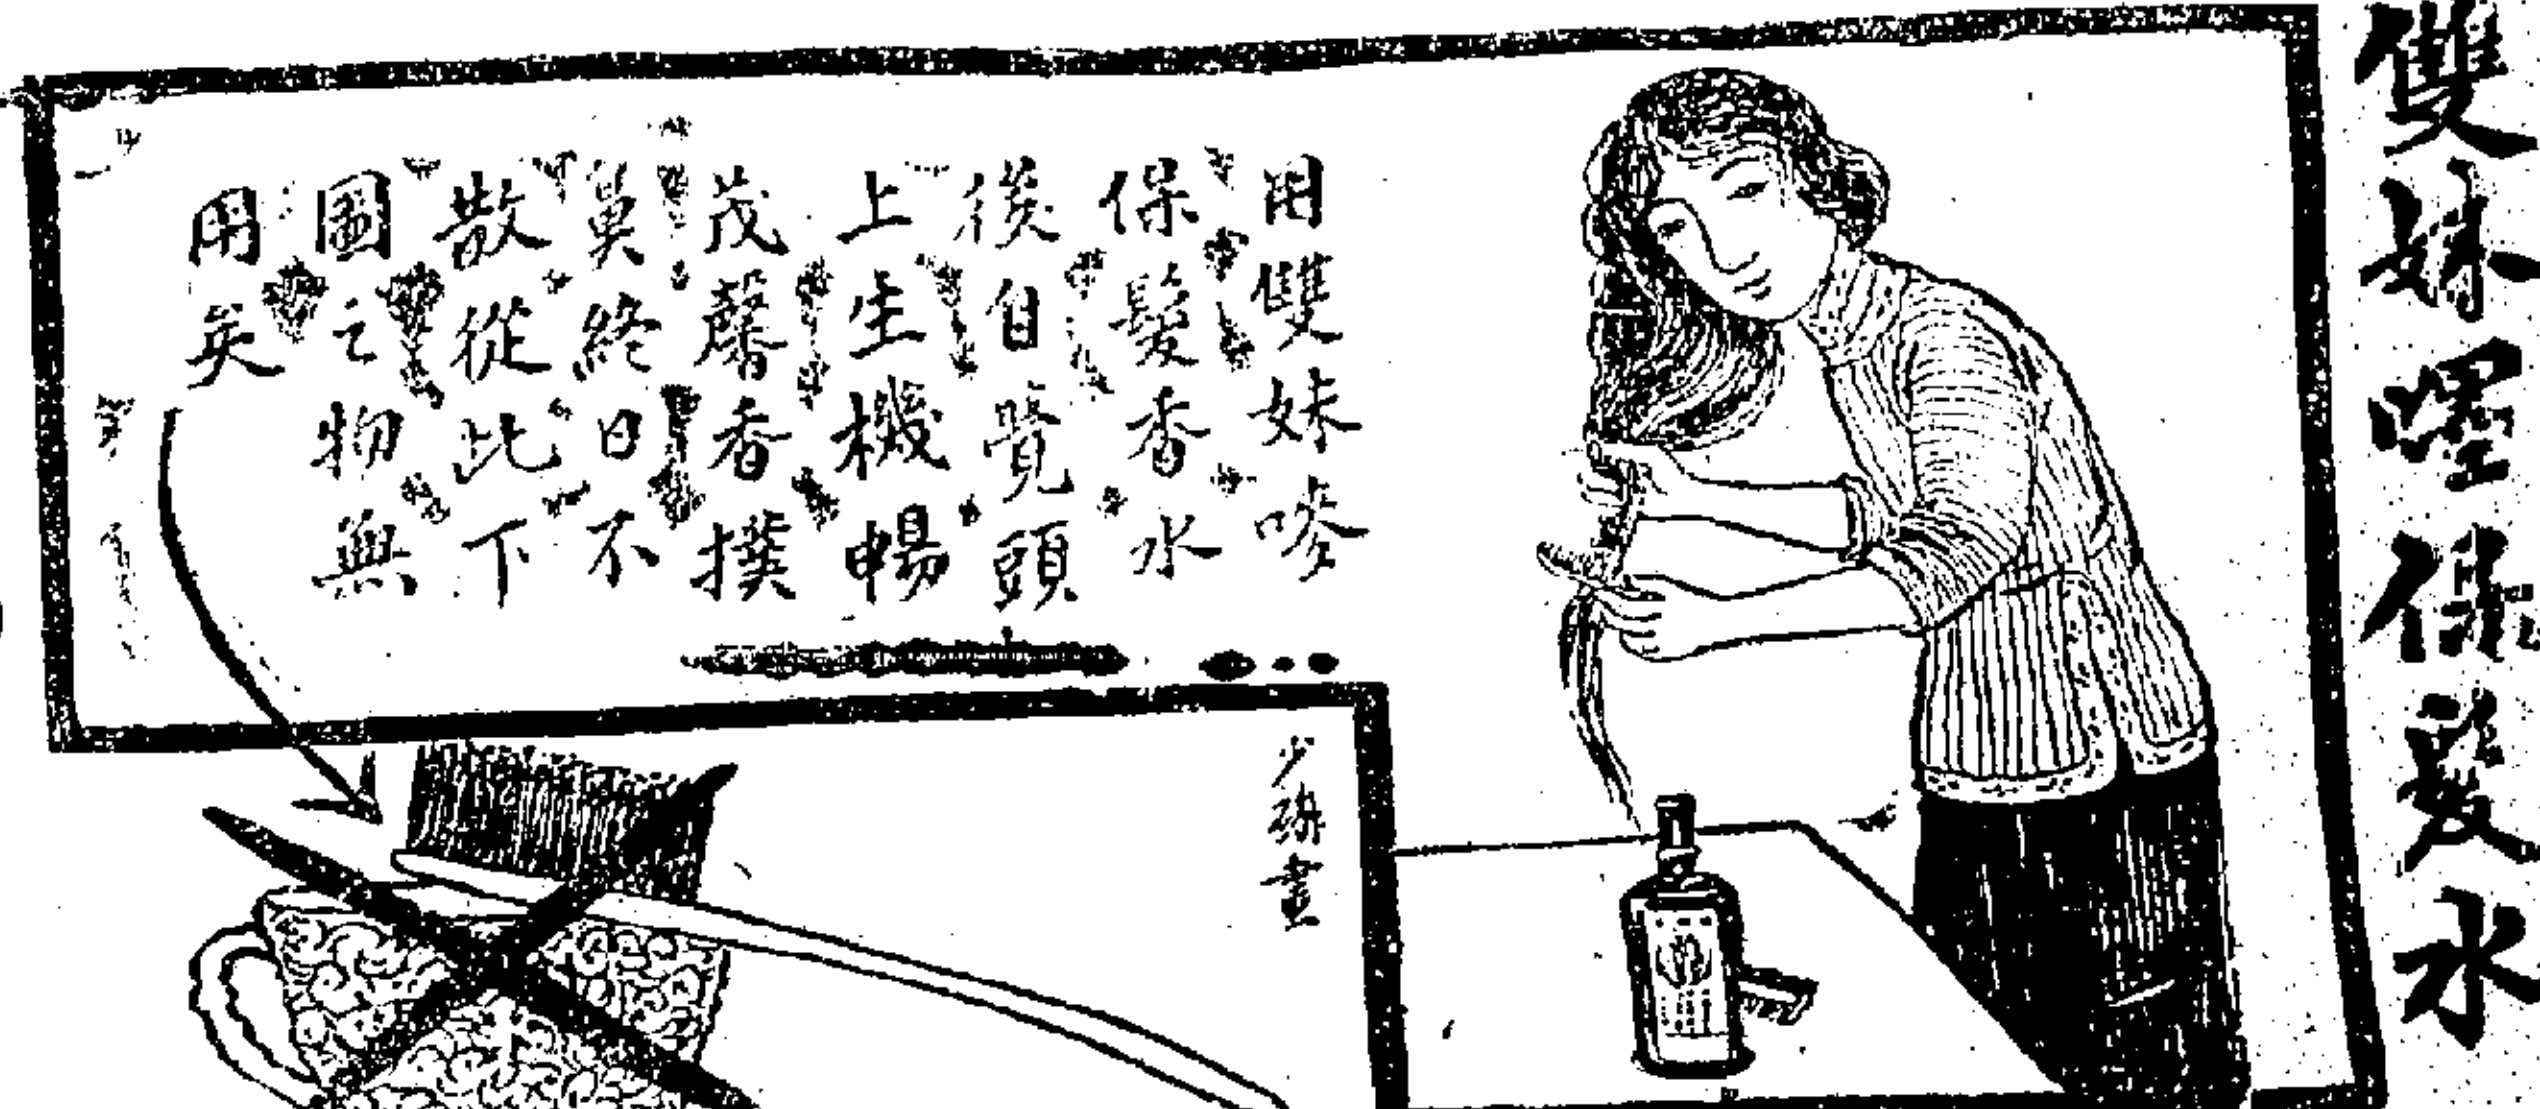 雙妹嚜保髮水
用雙妹嘜
保髮香水
後自覺頭
上生機暢
茂馨香撲
鼻終日不
散從此下
圖之物無
用矣
少陵畫